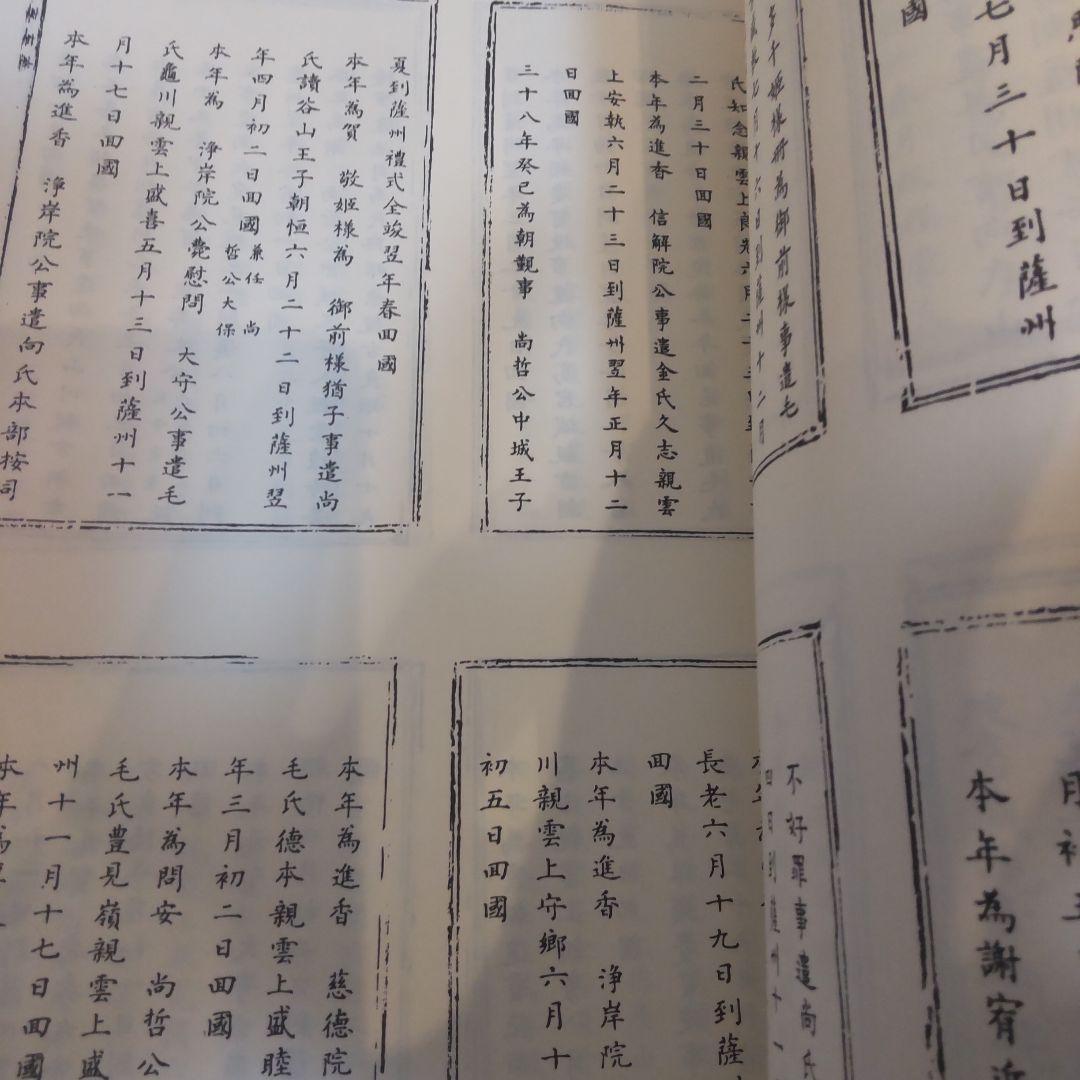 國
七月三十日到薩州
多千姫様所為御前様事遣毛
氏知念親雲上
二月三十日回國
本年為進香　信解院公事遣金氏久志親雲
上安執六月二十三日到薩州翌年正月十二
日回國
三十八年癸巳為朝覲事　尚哲公中城王子
夏到薩州禮式全竣翌年春回國
本年為賀　敬姫様為　御前様猶子事遣尚
氏讀谷山王子朝恒六月二十二日到薩州翌
年四月初二日回國兼任　尚
哲公大保
本年為　淨岸院公薨慰問　大守公事遣毛
氏龜川親雲上盛喜五月十三日到薩州十一
月十七日回國
本年為進香　淨岸院公事遣向氏本部按司
本年為謝宥
不好罪事遣尚氏
長老六月十九日到薩
回國
本年為進香　淨岸院
川親雲上守鄉六月十
初五日回國
本年為進香　慈德院
毛氏德本親雲上盛睦
年三月初二日回國
本年為問安　尚哲公
毛氏豊見嶺親雲上盛
州十一月十七日回國
本年為